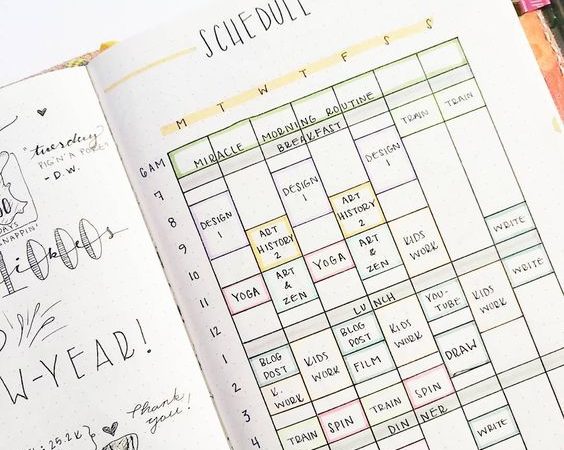 tuesday
- D.W.
NAPPIN'
W-YEAR!
25.2K
Thank
you!
SCHEDULE
M T W T F S S
6AM MIRACLE MORNING ROUTINE
BREAKFAST
TRAIN TRAIN
7
DESIGN
1
DESIGN
1
8
DESIGN
1
ART
HISTORY
2
9
ART
HISTORY
2
10
YOGA
ART
&
ZEN
YOGA
ART
&
ZEN
KIDS
WORK
WRITE
11
LUNCH
WRITE
12
BLOG
POST
KIDS
WORK
BLOG
POST
KIDS
WORK
YOU-
TUBE
KIDS
WORK
1
K.
WORK
FILM
DRAW
2
TRAIN
SPIN
TRAIN
SPIN
3
DINNER
4
WRITE